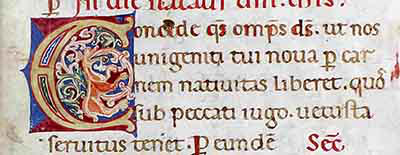 Concede qs omps ds. ut nos
unigeniti tui nova p car
nem nativitas liberet. quos
sub peccati iugo. vetusta
servitus tenet. P eunde Sec